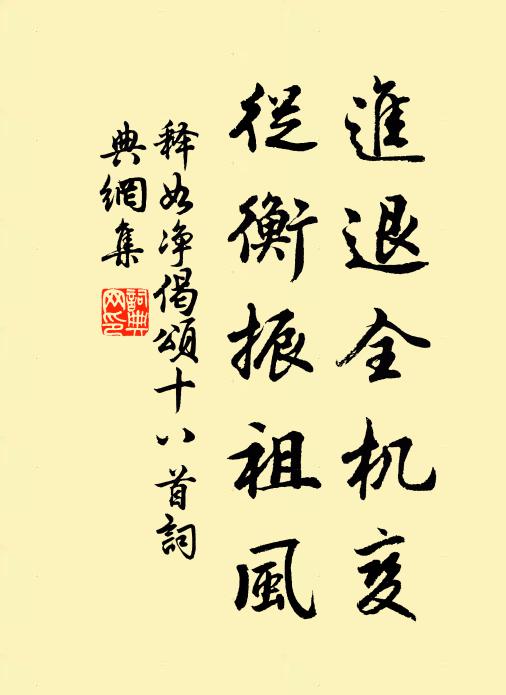 進退全机变
従衡振祖風
释如净偈頌十八首詞
典網集
詞典
网印